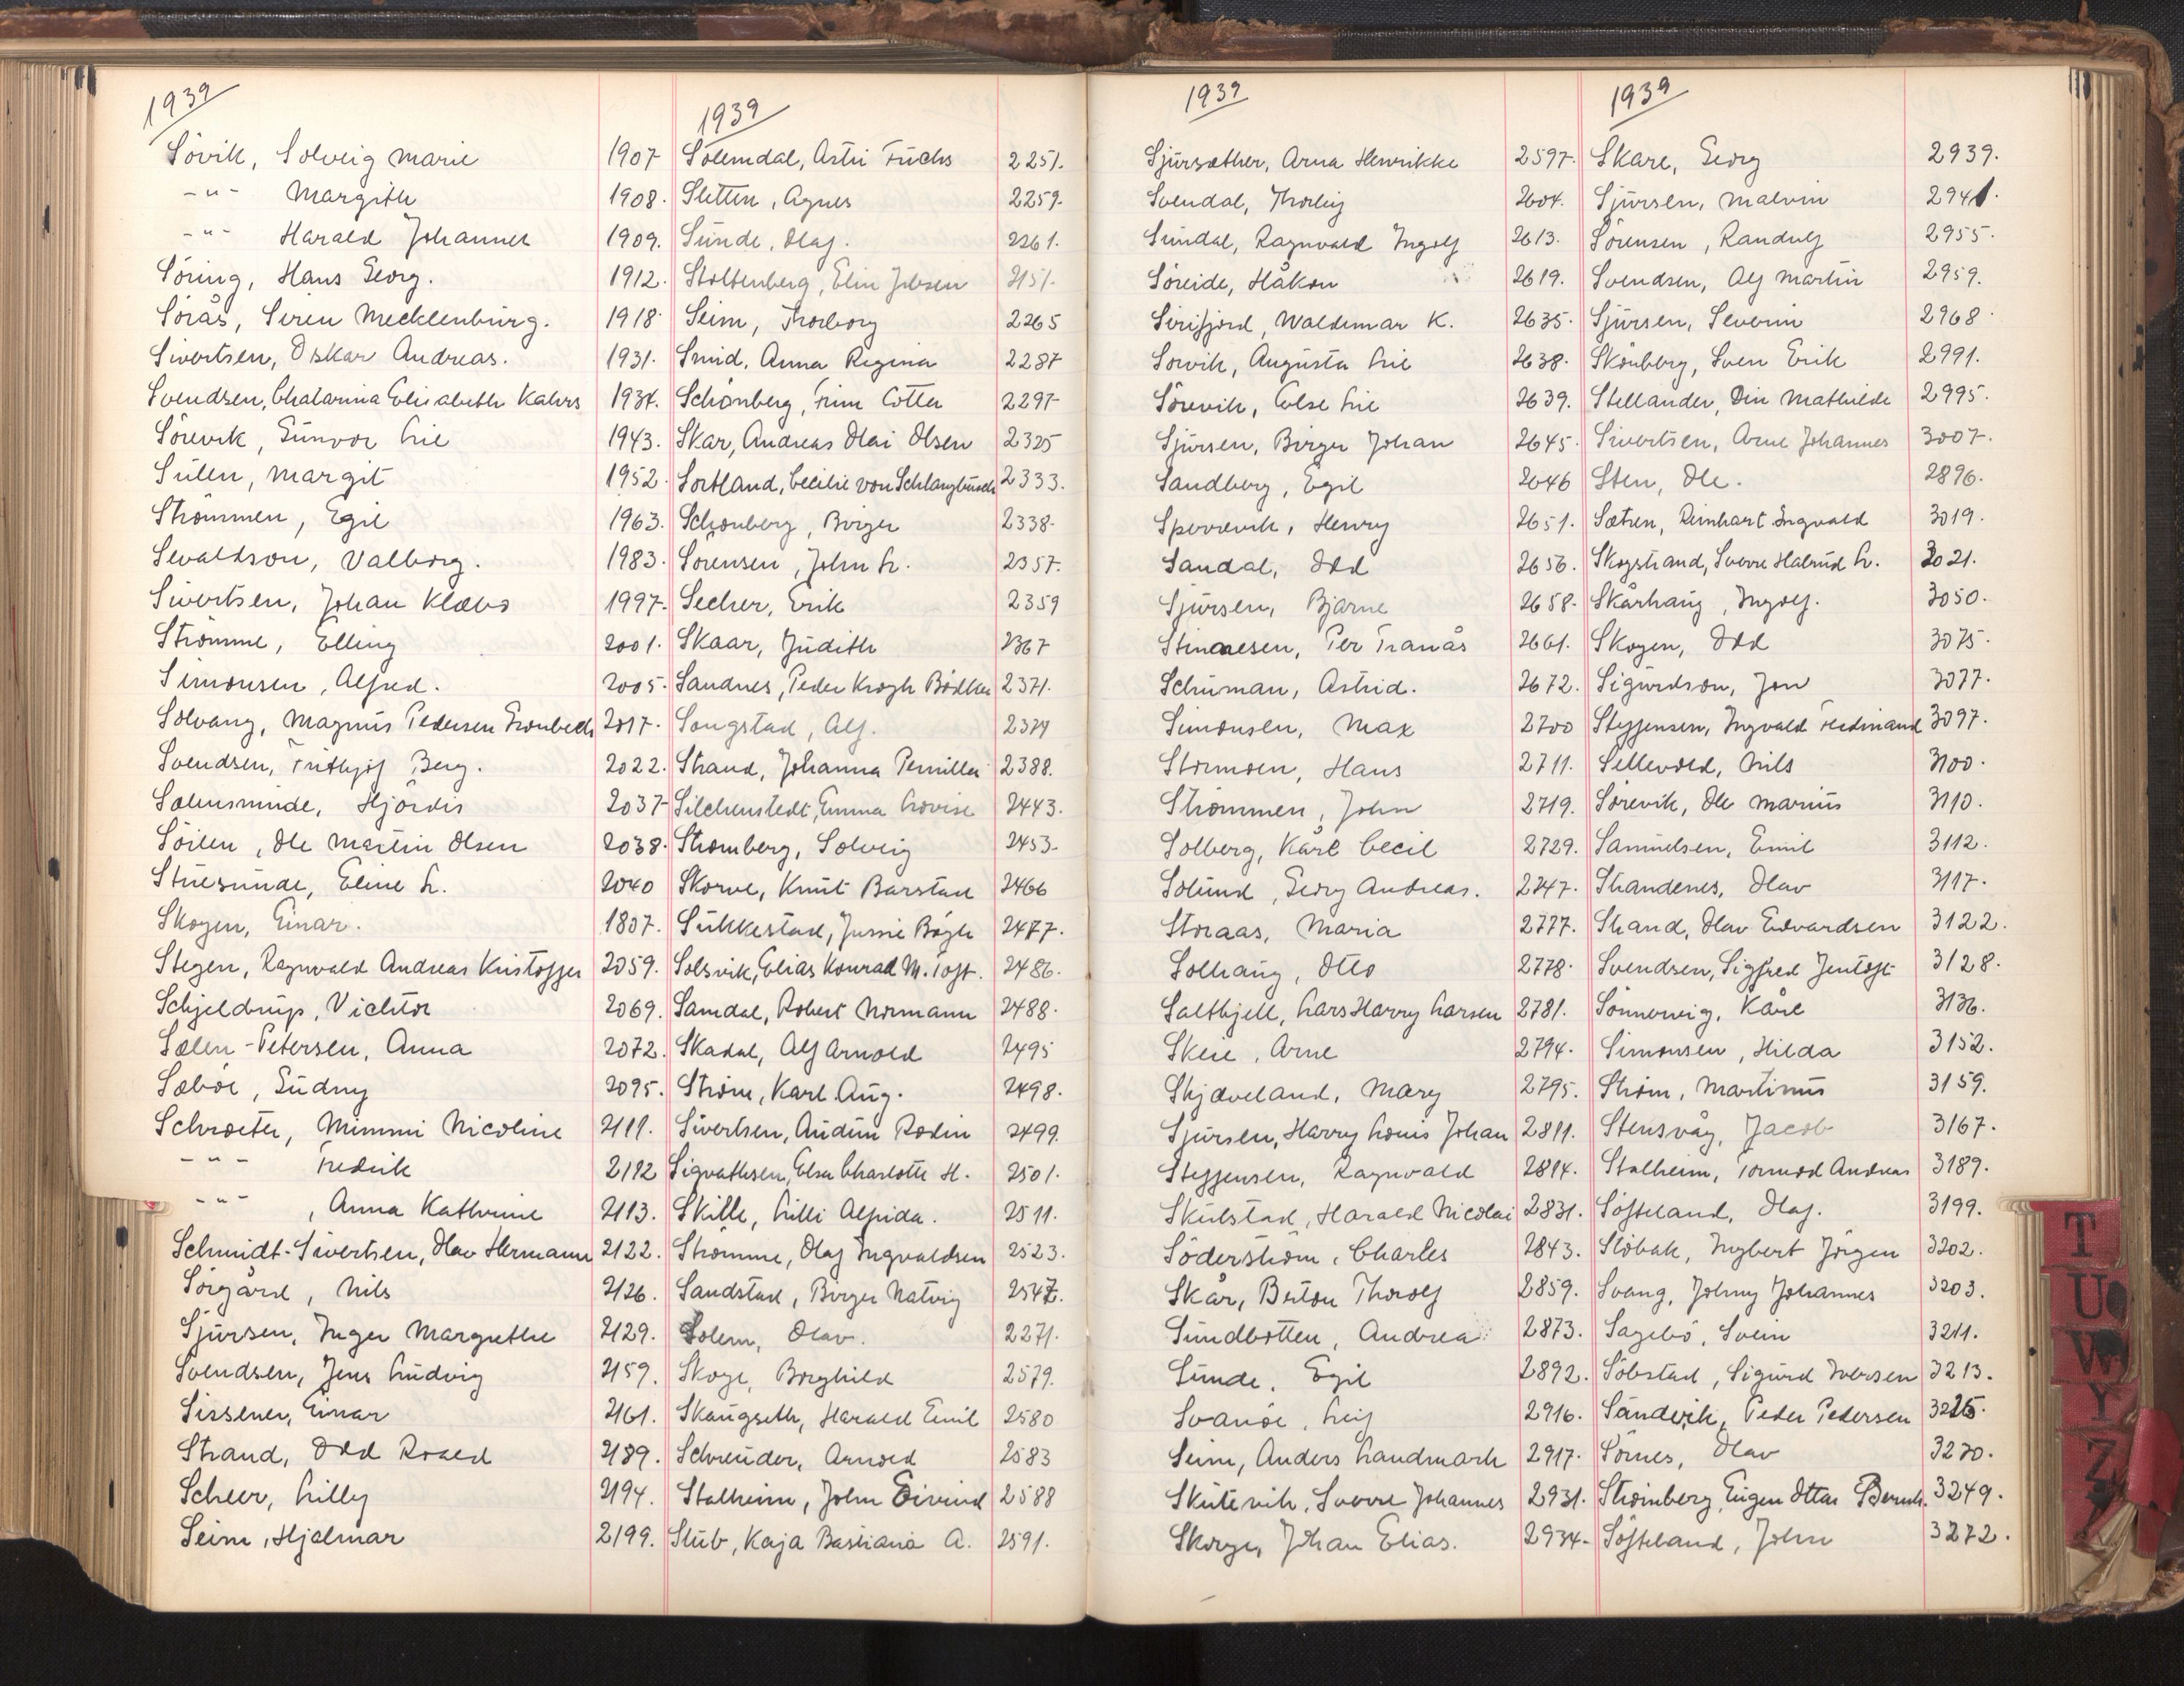 1939
Sövik, Solveig Marie 1907
-"- Margith 1908.
-"- Harald Johannes 1909.
Söring, Hans Georg. 1912.
Sörås, Siren Mecklenburg. 1918
Sivertsen, Oskar Andreas. 1931.
Svendsen, Chatarina Elisabeth Kahrs 1934.
Sörevik, Gunvor Lie 1943.
Sulen, Margit 1952
Strömmen, Egil 1963.
Sevaldson, Valborg. 1983.
Sivertsen, Johan Klæbo 1997.
Strömme, Elling 2001.
Simonsen, Alfred. 2005.
Solvang, Magnus Pedersen Gronbech 2017.
Svendsen, Frithjof Berg. 2022.
Salmsminde, Hjördis 2037
Söilen, Ole Martin Olsen 2038.
Stuesunde, Eline L. 2040
Skogen, Einar. 1807.
Stegen, Ragnvald Andreas Kristoffer 2059.
Schjeldrup, Vicktor 2069.
Sælen-Petersen, Anna 2072.
Sæböe, Gudny 2095.
Schrøeter, Mimmi Nicoline 2111.
-"- Fredrik 2112
-"- , Anna Kathrine 2113.
Schmidt-Sivertsen, Olav Hermann 2122.
Sörgård, Nils 2126.
Sjursen, Inger Margrethe 2129.
Svendsen, Jens Ludvig 2159.
Sissener, Einar 2161.
Strand, Odd Roald 2189.
Scheer, Lilly 2194.
Seim, Hjalmar 2199.
1939
Solemdal, Astri Fuchs 2251.
Sletten, Agnes 2259.
Sunde, Olaf. 2261.
Stoltenberg, Elin Jebsen 2151.
Seim, Thorborg 2265
Smid, Anna Regina 2287
Schönberg, Finn Cotta 2297
Skar, Andreas Olai Olsen 2325
Sortland, Cecilie von Schlanbusch 2333.
Schonberg, Birger 2338.
Sörensen, John L. 2357.
Secher, Erik 2359
Skaar, Judith 2367
Sandnes, Peder Krogh Bödtker 2371.
Songstad, Alf. 2379
Strand, Johanna Pernilla 2388.
Silchenstedt, Emma Lovise 2443.
Stromberg, Solveig 2453.
Skorve, Knut Barstad 2466
Sukkestad, Jussie Bögh 2477.
Solsvik, Elias Konrad M. Toft. 2486.
Samdal, Robert Normann 2488.
Skadal, Alf Arnold 2495
Ström, Karl Aug. 2498.
Sivertsen, Audun Rodin 2499.
Sigvathsen, Elsa Charlotte H. 2501.
Skille, Lilli Alfida. 2511.
Strömme, Olaf Ingvaldsen 2523.
Sandstad, Birger Natvig 2547.
Solem, Olav. 2271.
Skoge, Borghild 2579.
Skaugseth, Harald Emil 2580
Schreuder, Arnold 2583
Stalheim, John Eivind 2588
Stub, Kaja Bastiana A. 2591.
1939
Sjursæther, Arna Henrikke 2597.
Svendal, Thorleif 2604.
Sundal, Ragnvald Ingolf 2613.
Söreide, Håkon 2619.
Sirifjord, Waldemar K. 2635.
Sorvik, Augusta Lie 2638.
Sörevik, Else Lie 2639.
Sjursen, Birger Johan 2645.
Sandberg, Egil 2646
Sperrevik, Henry 2651.
Sandal, Odd 2656.
Sjursen, Bjarne 2658.
Stinaesen, Per Tranås 2661.
Schuman, Astrid. 2672.
Simonsen, Max 2700
Stormoen, Hans 2711.
Strömmen, John 2719.
Solberg, Kåre Cecil 2729.
Solund, Georg Andreas. 2747.
Storaas, Maria 2777.
Solhaug, Otto 2778.
Saltkjell, Lars Harry Larsen 2781.
Skeie, Arne 2794.
Skjæveland, Mary 2795.
Sjursen, Harry Louis Johan 2811.
Steffensen, Ragnvald 2814.
Skulstad, Harald Nicolai 2831.
Söderström, Charles 2843.
Skår, Beston Thorolf 2859.
Sundbotten, Andrea 2873.
Sunde, Egil 2892.
Svanöe, Leif 2916.
Seim, Anders Landmark 2917.
Skutevik, Sverre Johannes 2931.
Skorge, Johan Elias. 2934.
1939
Skare, Georg 2939.
Sjursen, Malvin 2941.
Sörensen, Randulf 2955.
Svendsen, Alf Martin 2959.
Sjursen, Severin 2968
Skönberg, Sven Erik 2991.
Stellander, Din Mathilde 2995.
Sivertsen, Arne Johannes 3007.
Sten, Ole. 2896.
Sætren, Reinhart Ingvald 3019.
Skogstrand, Sverre Halrud L. 3021.
Skårhaug, Ingolf. 3050.
Skogen, Odd 3075.
Sigurdson, Jon 3077.
Steffensen, Ingvald Ferdinand 3097.
Sellevold, Nils 3100.
Sörevik, Ole Marius 3110.
Samuelsen, Emil 3112.
Strandenes, Olav 3117.
Strand, Olav Edvardsen 3122.
Svendsen, Sigfred Jentoft 3128.
Sönnervig, Kåre 3136.
Simonsen, Hilda 3152.
Ström, Martinus 3159.
Stensvåg, Jacob 3167.
Stalheim, Tormod Andreas 3189.
Söfteland, Olaf. 3199.
Slöbak, Ingbert Jörgen 3202.
Svang, Johnny Johannes 3203.
Sagebö, Svein 3211.
Söbstad, Sigurd Iversen 3213.
Sandvik, Peder Pedersen 3225.
Sörnes, Olav 3230.
Strömberg, Eugen Ottar Bernh. 3249.
Söfteland, John 3272.
T
U
W
Y
Z